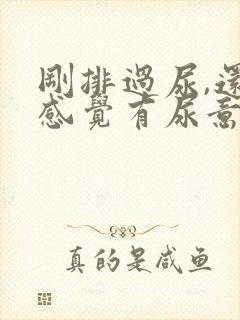 剛排過尿,還
感覺有尿意
真的是咸鱼